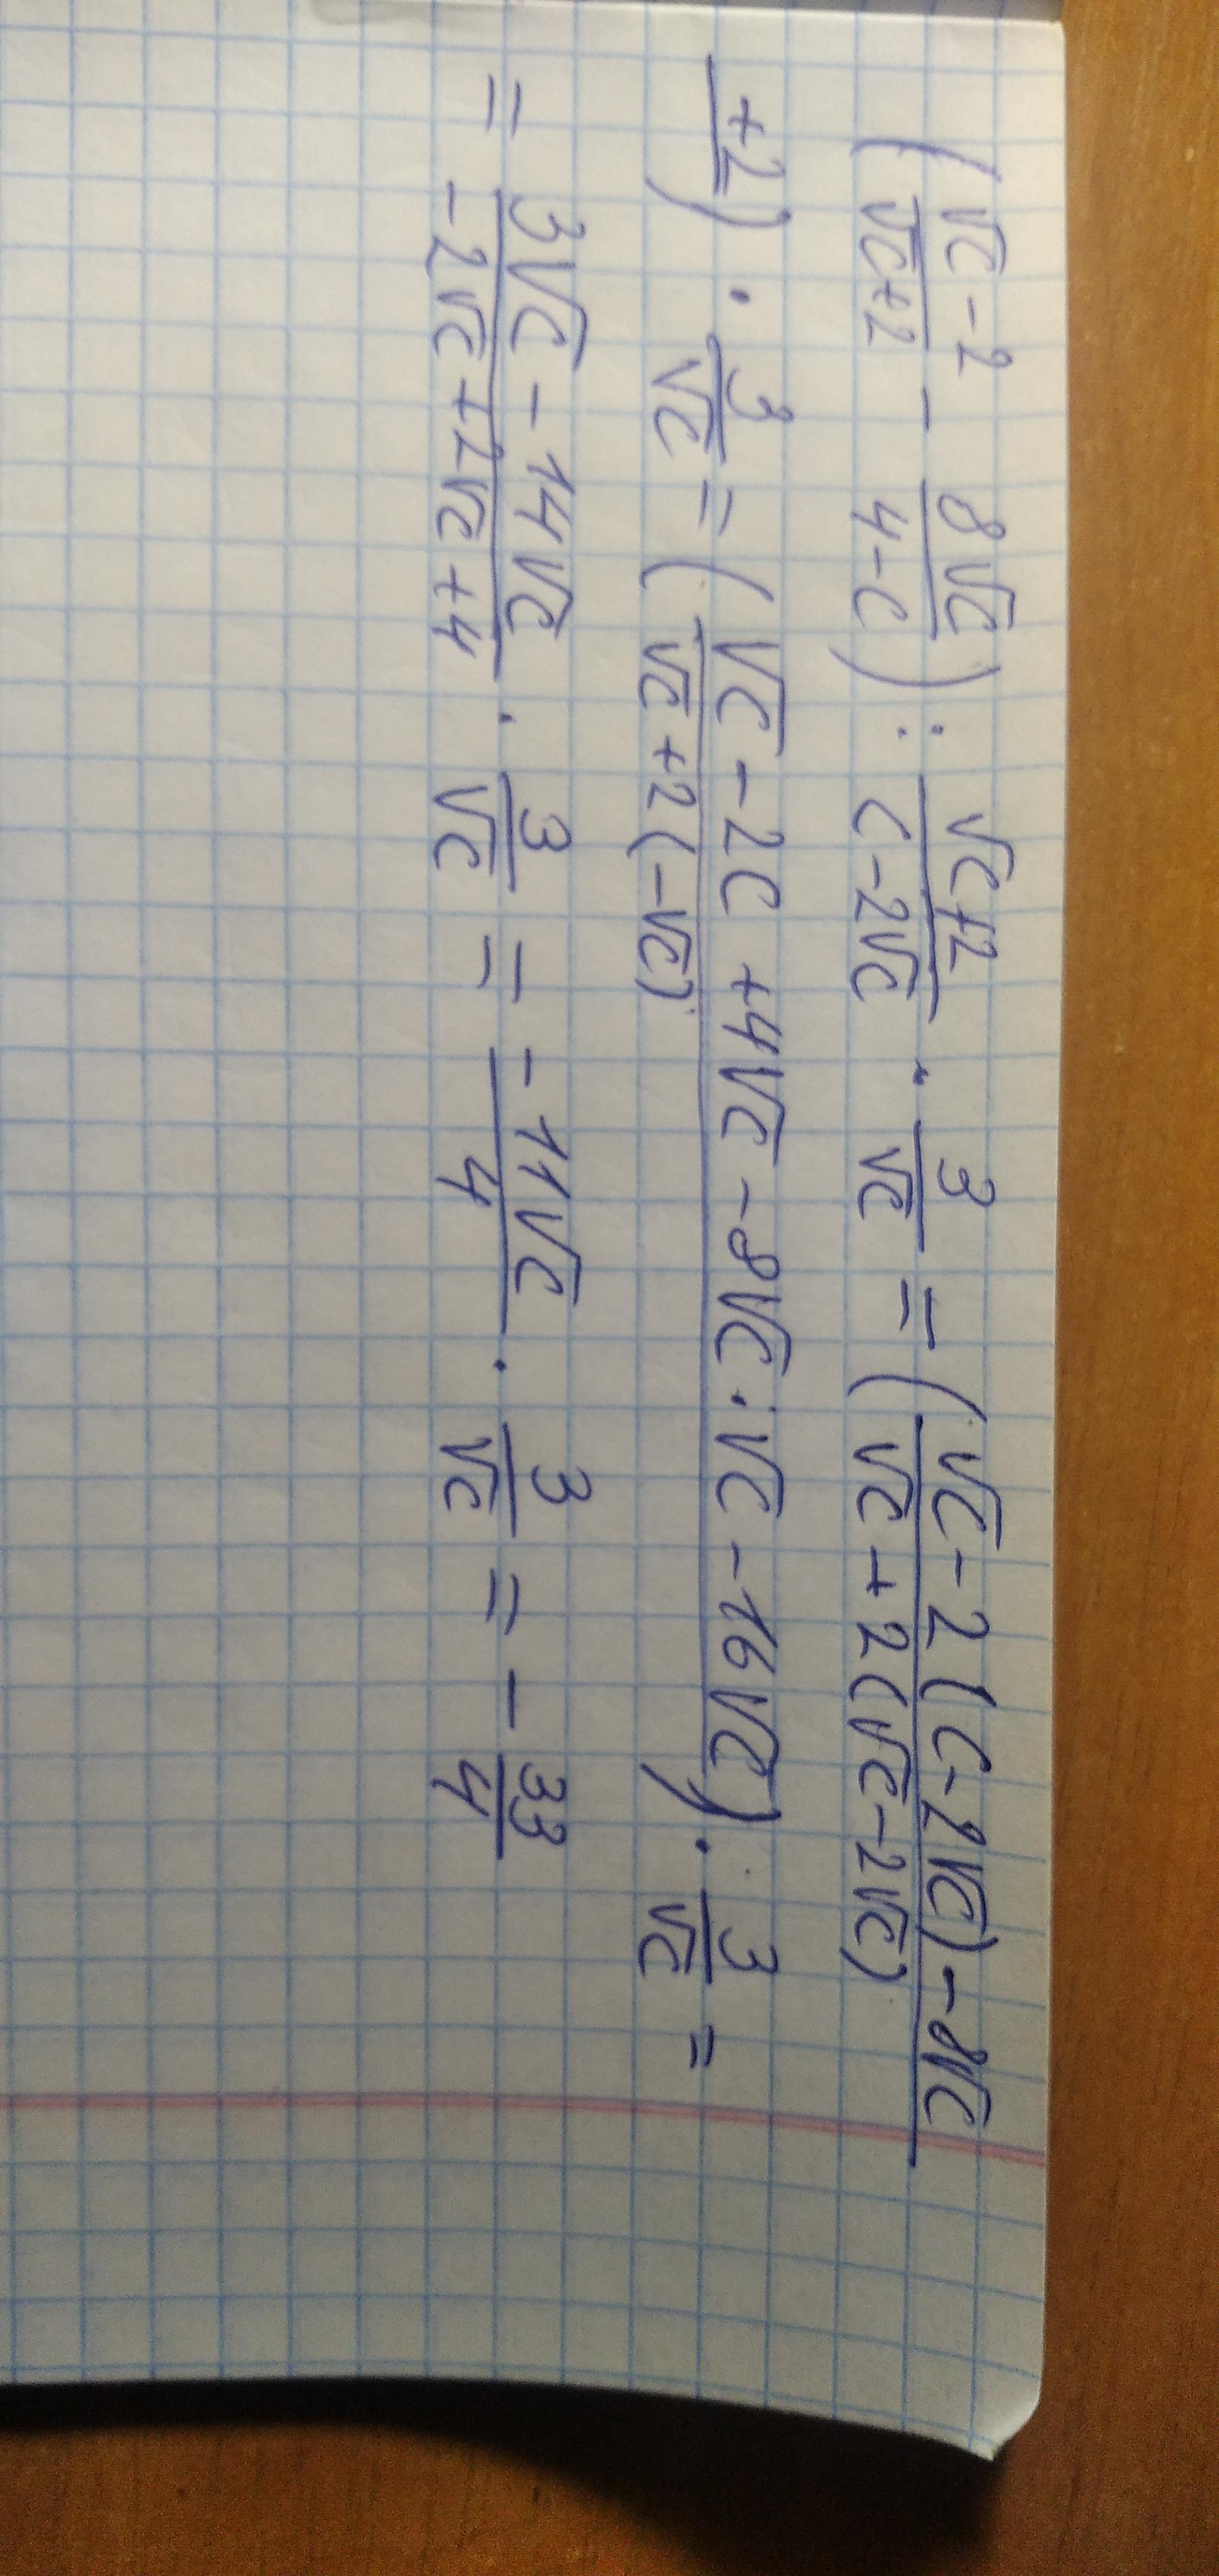 (√c-2/√c+2 - 8√c/4-c) : √c+2/c-2√c · 3/√c = (√c-2(c-2√c)-8√c/√c+2(√c-2√c)
+2) · 3/√c = (√c-2c+4√c-8√c:√c-16√c/√c+2(-√c)) · 3/√c =
= 3√c-14√c/-2√c+2√c+4 · 3/√c = -11√c/4 · 3/√c = -33/4